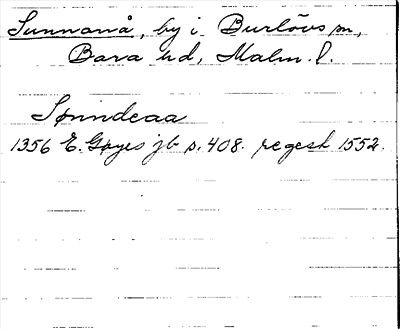 Sunnanå, by i Burlövs sn,
Bara hd, Malm. l.
Sønndeaa
1356 E. Gøyes jb s. 408. regest 1552.